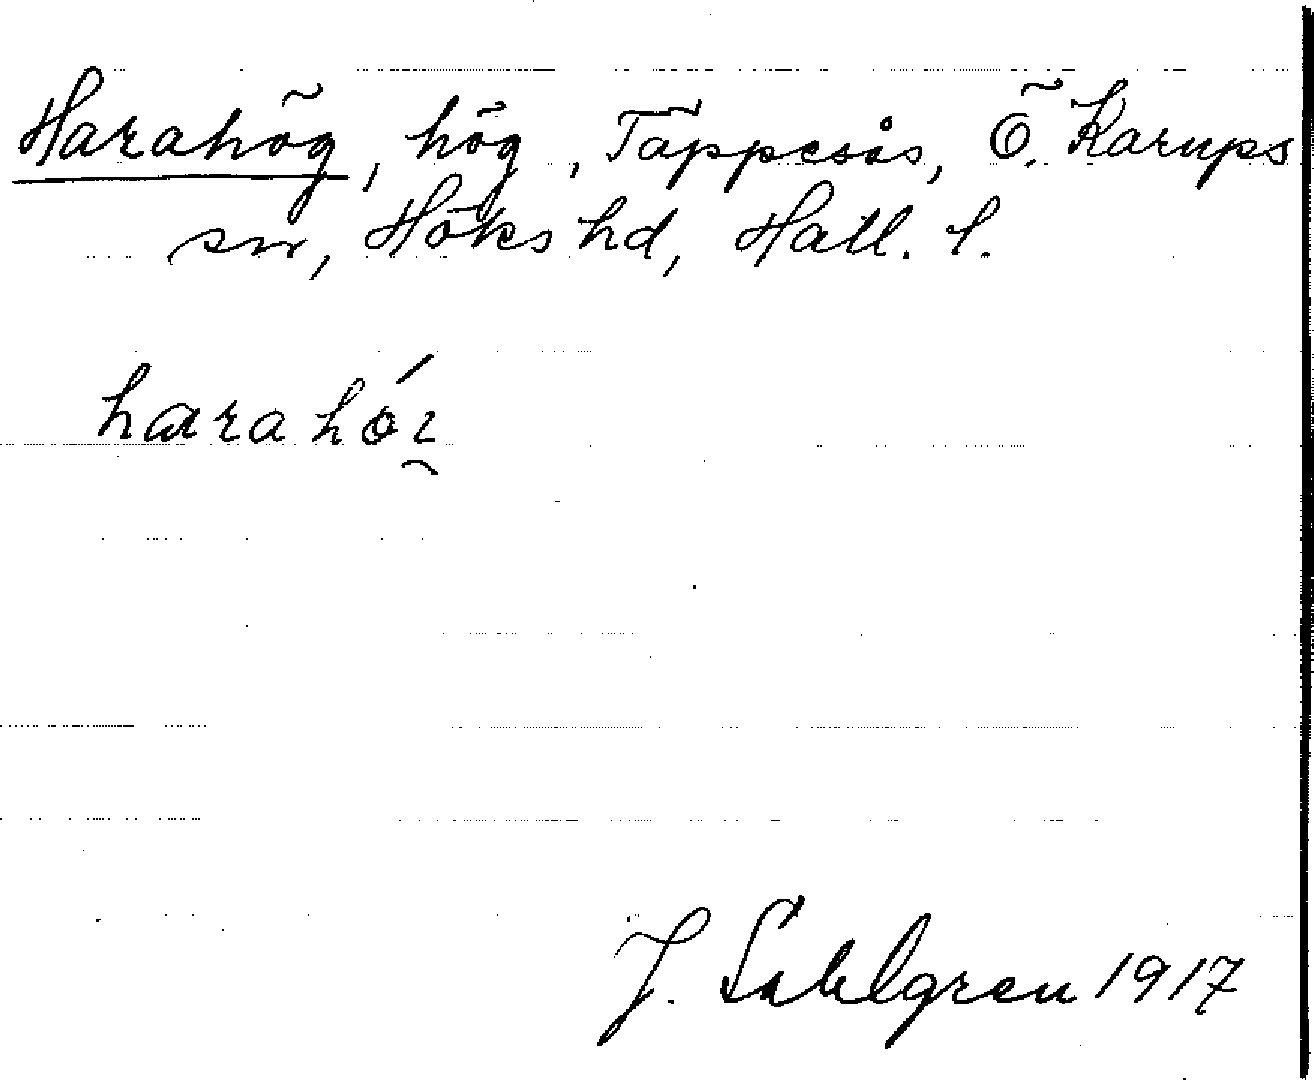 Harahög, hög, Täppesås, Ö. Karups
sn, Höks hd, Hall. l.
harahöɪ̯
J. Sahlgren 1917